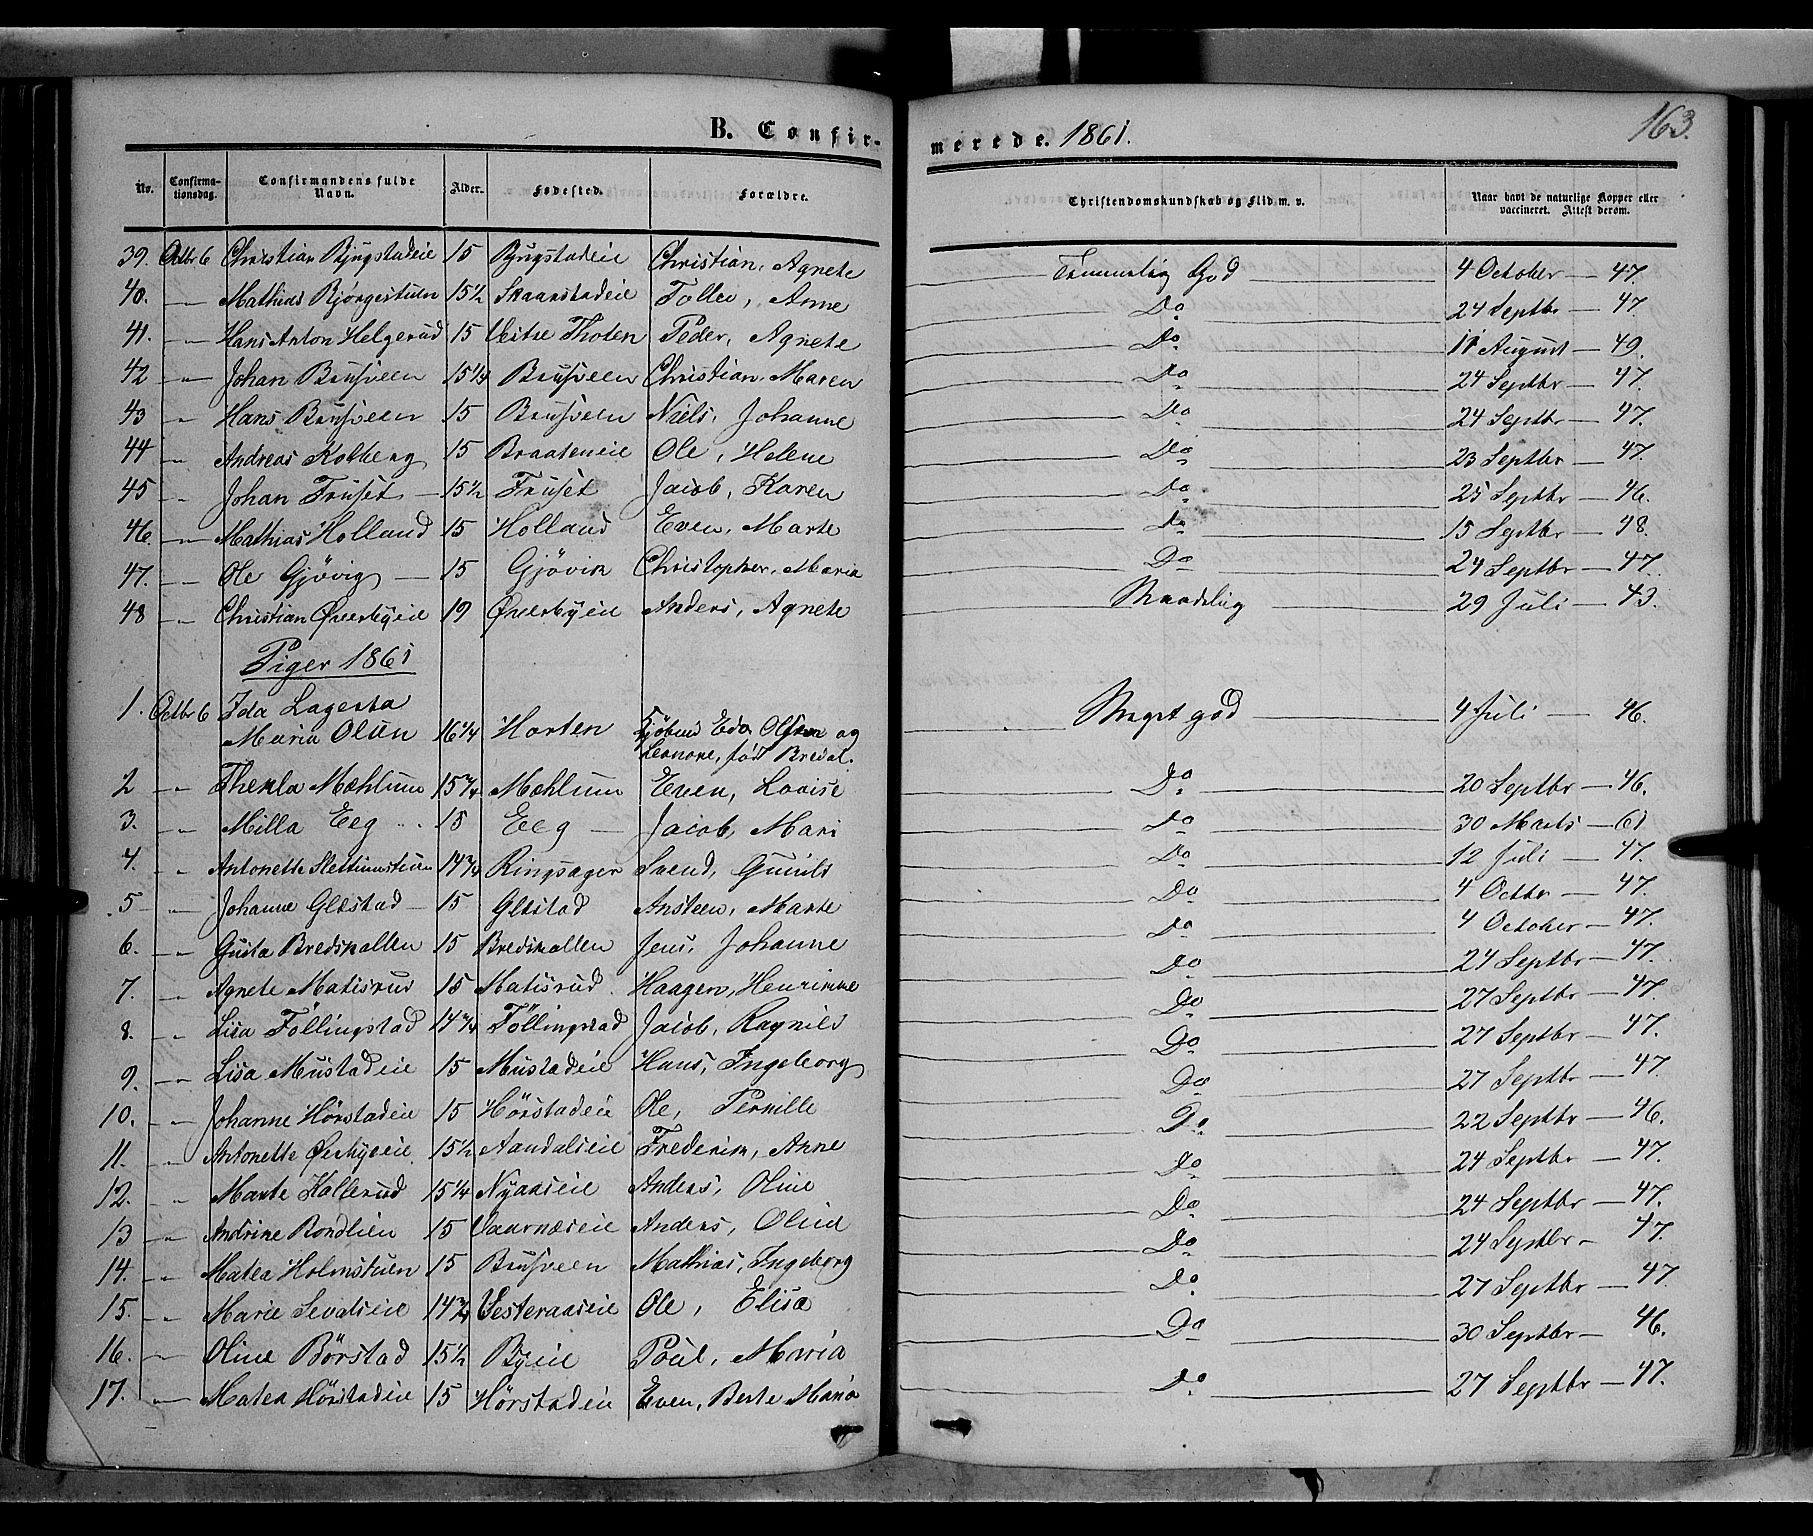 B. Confir- merede. 1861. 163.
No. Confirmationsdag. Confirmandens fulde Navn. Alder. Fødested. Forældre. Christendomskundskab og Flid m. v. Naar havt de naturlige Kopper eller vaccineret. Attest derom.
39. Octbr 6 Christian Bjugstadeie 15 Bjugstadeie Christian, Agnete Temmelig God 4 October 47.
40. " Mathias Bjørgestuen 15½ Skaarstadeie Tollev, Anne Do 24 Septbr 47
41. " Hans Anton Helgerud 15 Vestre Thoten Peder, Agnete Do 11 August 49.
42 " Johan Brusveen 15¼ Brusveen Christian, Maren Do 24 Septbr 47.
43 " Hans Brusveen 15 Brusveen Niels, Johanne Do 24 Septbr 47.
44 " Andreas Kolberg 15 Braateneie Ole, Helene Do 23 Septbr 47.
45 " Johan Fruset 15½ Fruset Jacob, Karen Do 25 Septbr 46.
46. " Mathias Holland 15 Holland Even, Marte Do 15 Septbr 48.
47. " Ole Gjövig 15 Gjövik Christopher, Maria Do 24 Septbr 47.
48 " Christian Øverbyeie 19 Øverbyeie Anders, Agnete Maadelig 29 Juli 43.
Piger 1861
1. Octbr 6 Ida Lagerta
Maria Olsen 16¼ Horten Eda Olsen og Leonore, föd Bredal. Meget god 4 Juli 46.
2 " Thekla Mæhlum 15¾ Mæhlum Even, Lovise Do 20 Septbr 46.
3. " Milla Eeg 15 Eeg Jacob, Mari Do 30 Marts 61
4. " Antonette Slettumstuen 14¾ Ringsager Svend, Gunild Do 12 Juli 47.
5 " Johanne Glæstad 15 Glæstad Ansteen, Marte Do 4 Octbr 47.
6. " Gusta Bredskallen 15 Bredskallen Jens, Johanne Do 4 October 47.
7. " Agnete Matisrud 15 Matisrud Haagen, Henrikke Do 24 Septbr 47.
8. " Lisa Föllingstad 14¾ Föllingstad Jacob, Ragnild Do 27 Septbr 47.
9. " Lisa Mustadeie 15 Mustadeie Hans, Ingeborg Do 27 Septbr 47.
10. " Johanne Hörstadeie 15 Hörstadeie Ole, Pernille Do 27 Septbr 47.
11. " Antonette Øverbyeie 15½ Aandalseie Frederik, Anne Do 22 Septbr 46.
12. " Marte Hallerud 15¼ Nyaaseie Anders, Oline Do 24 Septbr 47.
13 " Andrine Rondlien 15 Vaarnæseie Anders, Oline Do 24 Septbr 47.
14. " Matea Holmstuen 15 Brusveen Mathias, Ingeborg Do 24 Septbr 47.
15. " Marie Sevalseie 14¾ Vesteraaseie Ole, Elisa Do 27 Septbr 47.
16. " Oline Börstad 15½ Byeie Poul, Maria Do 30 Septbr 46.
17. " Matea Hörstadeie 15 Hörstadeie Even, Berte Maria Do 27 Septbr 47.